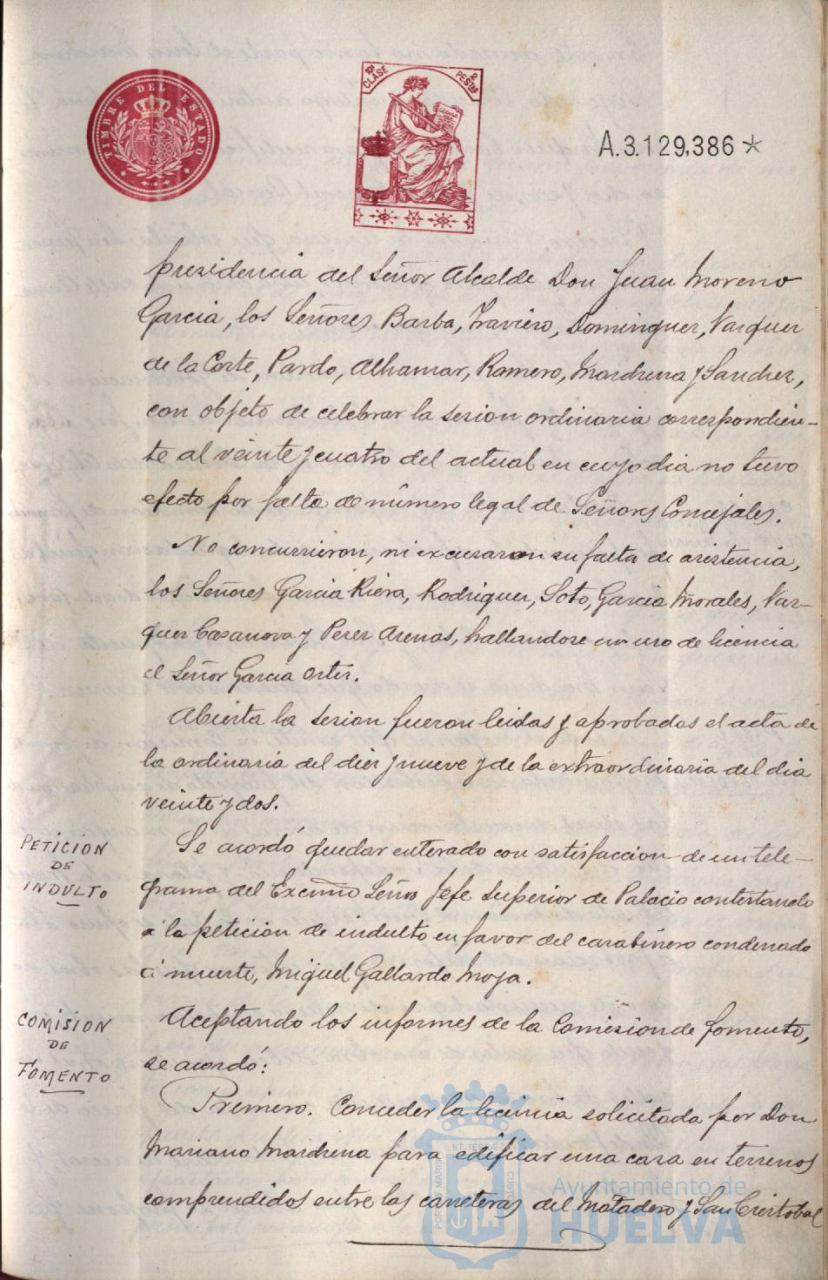 TIMBRE DEL ESTADO
10ª CLASE
2 PESETAS
A.3.129,386*
presidencia del Señor Alcalde Don Juan Moreno
Garcia, los Señores Barba, Traviero, Dominguez, Vazquez
de la Corte, Pardo, Alhamar, Ramero, Mardrena y Sanchez,
con objeto de celebrar la sesion ordinaria correspondien-
te al veinte y cuatro del actual en cuyo dia no tuvo
efecto por falta de número legal de Señores Concejales.
No concurrieron, ni excusaron su falta de asistencia,
los Señores Garcia Riera, Rodriguez, Soto, Garcia Morales, Vaz-
quez Casanova y Perez Arenas, hallandose en uso de licencia
el Señor Garcia Ortiz.
Abierta la sesion fueron leidas y aprobadas el acta de
la ordinaria del diez y nueve y de la extraordinaria del dia
veinte y dos.
PETICION
DE
INDULTO
Se acordó quedar enterado con satisfaccion de un tele-
grama del Excmo Señor Jefe Superior de Palacio contestando
á la peticion de indulto en favor del carabinero condenado
á muerte, Miguel Gallardo Moya.
COMISION
DE
FOMENTO
Aceptando los informes de la Comision de fomento,
se acordó:
Primero. Conceder la licencia solicitada por Don
Mariano Mardrena para edificar una casa en terrenos
comprendidos entre las carreteras del Matadero y San Cristobal
Ayuntamiento de
HUELVA